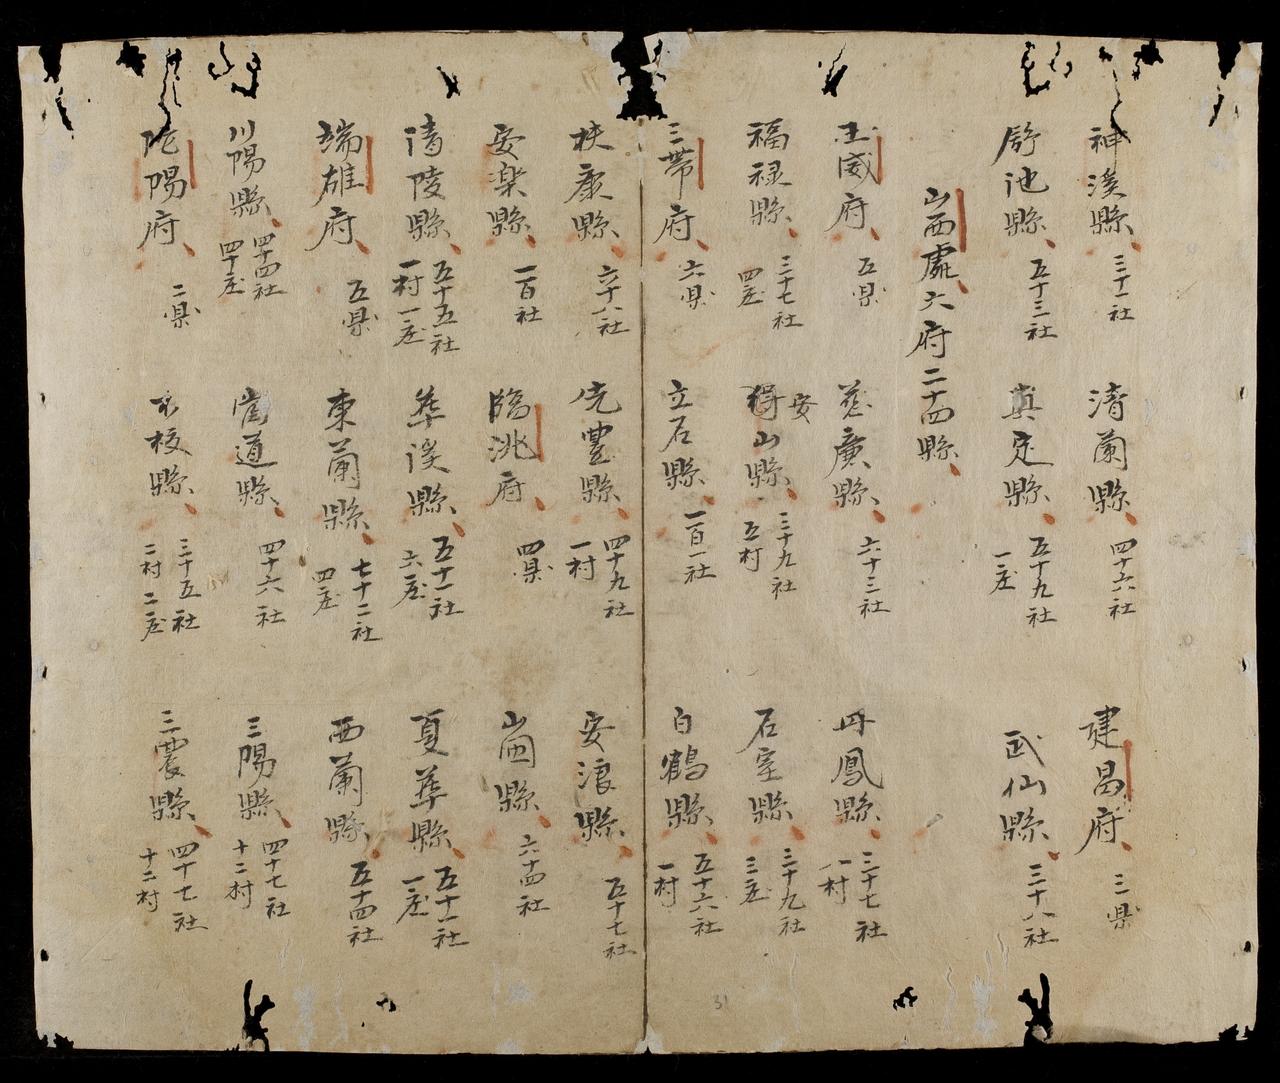 神溪縣 三十一社 清蘭縣 四十六社 建昌府 三県
舒池縣 五十三社 真定縣 五十九社 一庄 武仙縣 三十八社
山西處六府二十四縣
国威府 五県 慈廣縣 六十三社 丹鳳縣 三十七社 一村
福禄縣 三十七社 四庄 安山縣 三十九社 五村 石室縣 三十九社 三庄
三帶府 六県 立石縣 一百一社 白鶴縣 五十六社 一村
扶康縣 六十八社 先豊縣 四十九社 一村 安浪縣 五十七社
安楽縣 一百社 臨洮府 四県 山圍縣 六十四社
清陵縣 五十五社 一村一庄 華溪縣 五十一社 六庄 夏華縣 五十一社 一庄
端雄府 五県 東蘭縣 七十二社 四庄 西蘭縣 五十四社
川陽縣 四十四社 四十庄 當道縣 四十六社 三陽縣 四十七社 十二村
陀陽府 二県 不拔縣 三十五社 二村二庄 三農縣 四十七社 十二村
31